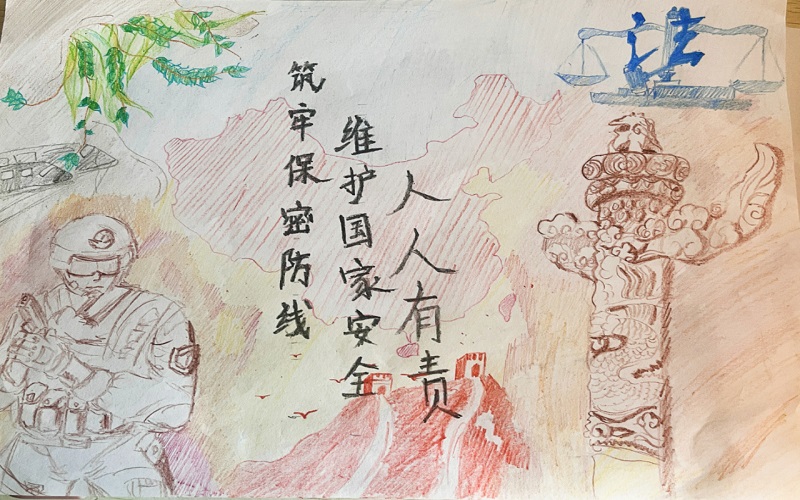 筑牢保密防线
维护国家安全
人人有责
法